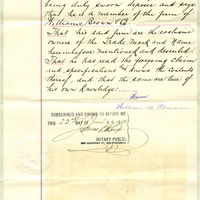 being duly sworn deposes and says
that he is a member of the firm of
Williams, Brown & Co.
That his said firm are the exclusive
owners of the Trade Mark and Name
hereinbefore mentioned and described.
That he has read the foregoing claim
and specifications & knows the contents
thereof, and that the same are true of
his own knowledge.
SUBSCRIBED AND SWORN TO BEFORE ME
THIS 22nd DAY OF A.D. 18
NOTARY PUBLIC,